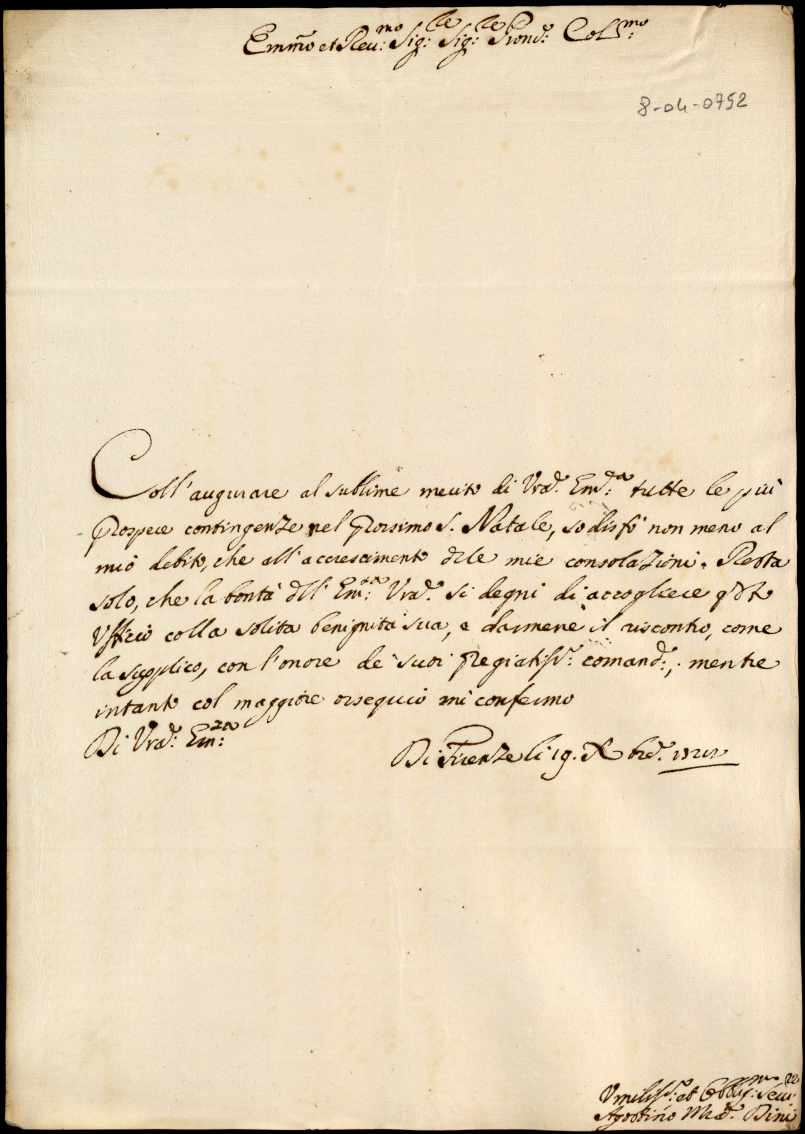 Emm̃o et Reu:mo Sig:re Sig:re Pron: Col:mo
8-04-0752
Coll'augurare al sublime merito di Vra: Em:za tutte le più
prospere contingenze nel prossimo S. Natale, sodisfò non meno al
mio debito, che all'accrescimento dele mie consolazioni. Resta
solo, che la bontà dell' Em:za Vra: si degni di accogliere qto
Vffizio colla solita benignità sua, e darmene il riscontro, come
la supplico, con l'onore de' suoi pregiatis: comand:, mentre
intanto col maggiore ossequio mi confermo
Di Vra: Em:za
Di Firenze li 19. Xbre:
Vmiliss: et Obblig:mo Seru:re
Agostino Dini